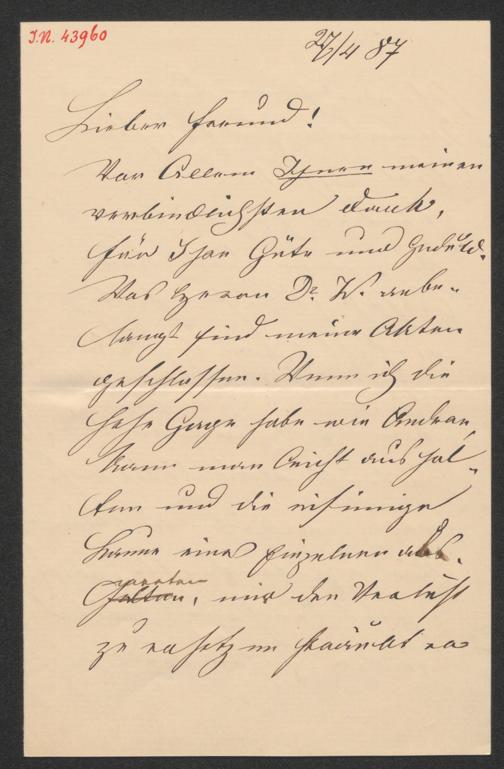 I.N. 43960
27/4 87
Lieber Freund!
Vor Allem Ihnen meinen
verbindlichsten Dank,
für Ihre Güte und Geduld.
Was Herrn Dr. W. anbe-
langt sind meine Akten
geschlossen. Wenn ich die
hohe Gage habe wie Andere,
kann man leicht aushal-
ten und die
eines Einzelnen
, mir den Verlust
zu ersetzen sträubt er